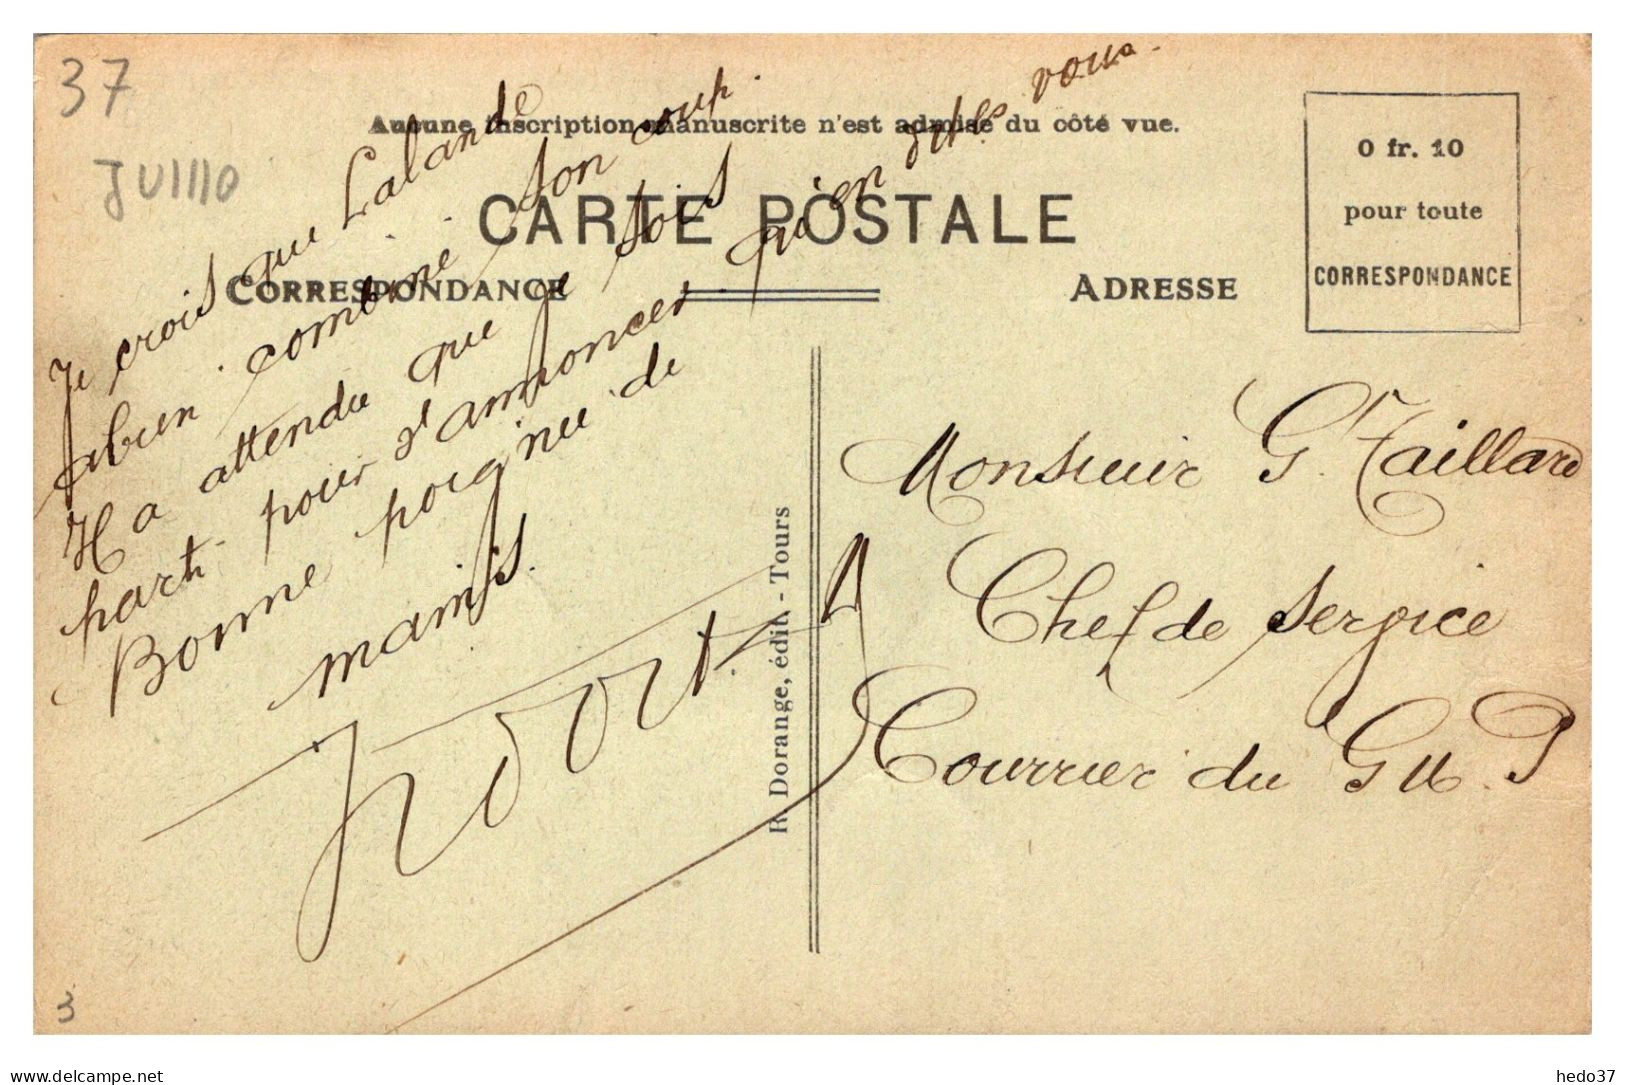 37
JUIII0
Aucune inscription manuscrite n'est admise du côté vue.
CARTE POSTALE
CORRESPONDANCE
ADRESSE
0 fr. 10
pour toute
CORRESPONDANCE
Je crois que Lalande
a bien combiné son coup.
Il a attendu que je sois
parti pour s'annoncer qu'en vous.
Bonne poignée de
mains.
R. Dorange, édit. - Tours
Monsieur G. Taillard
Chef de Service
Courrier du
3
delcampe.net
hedo37